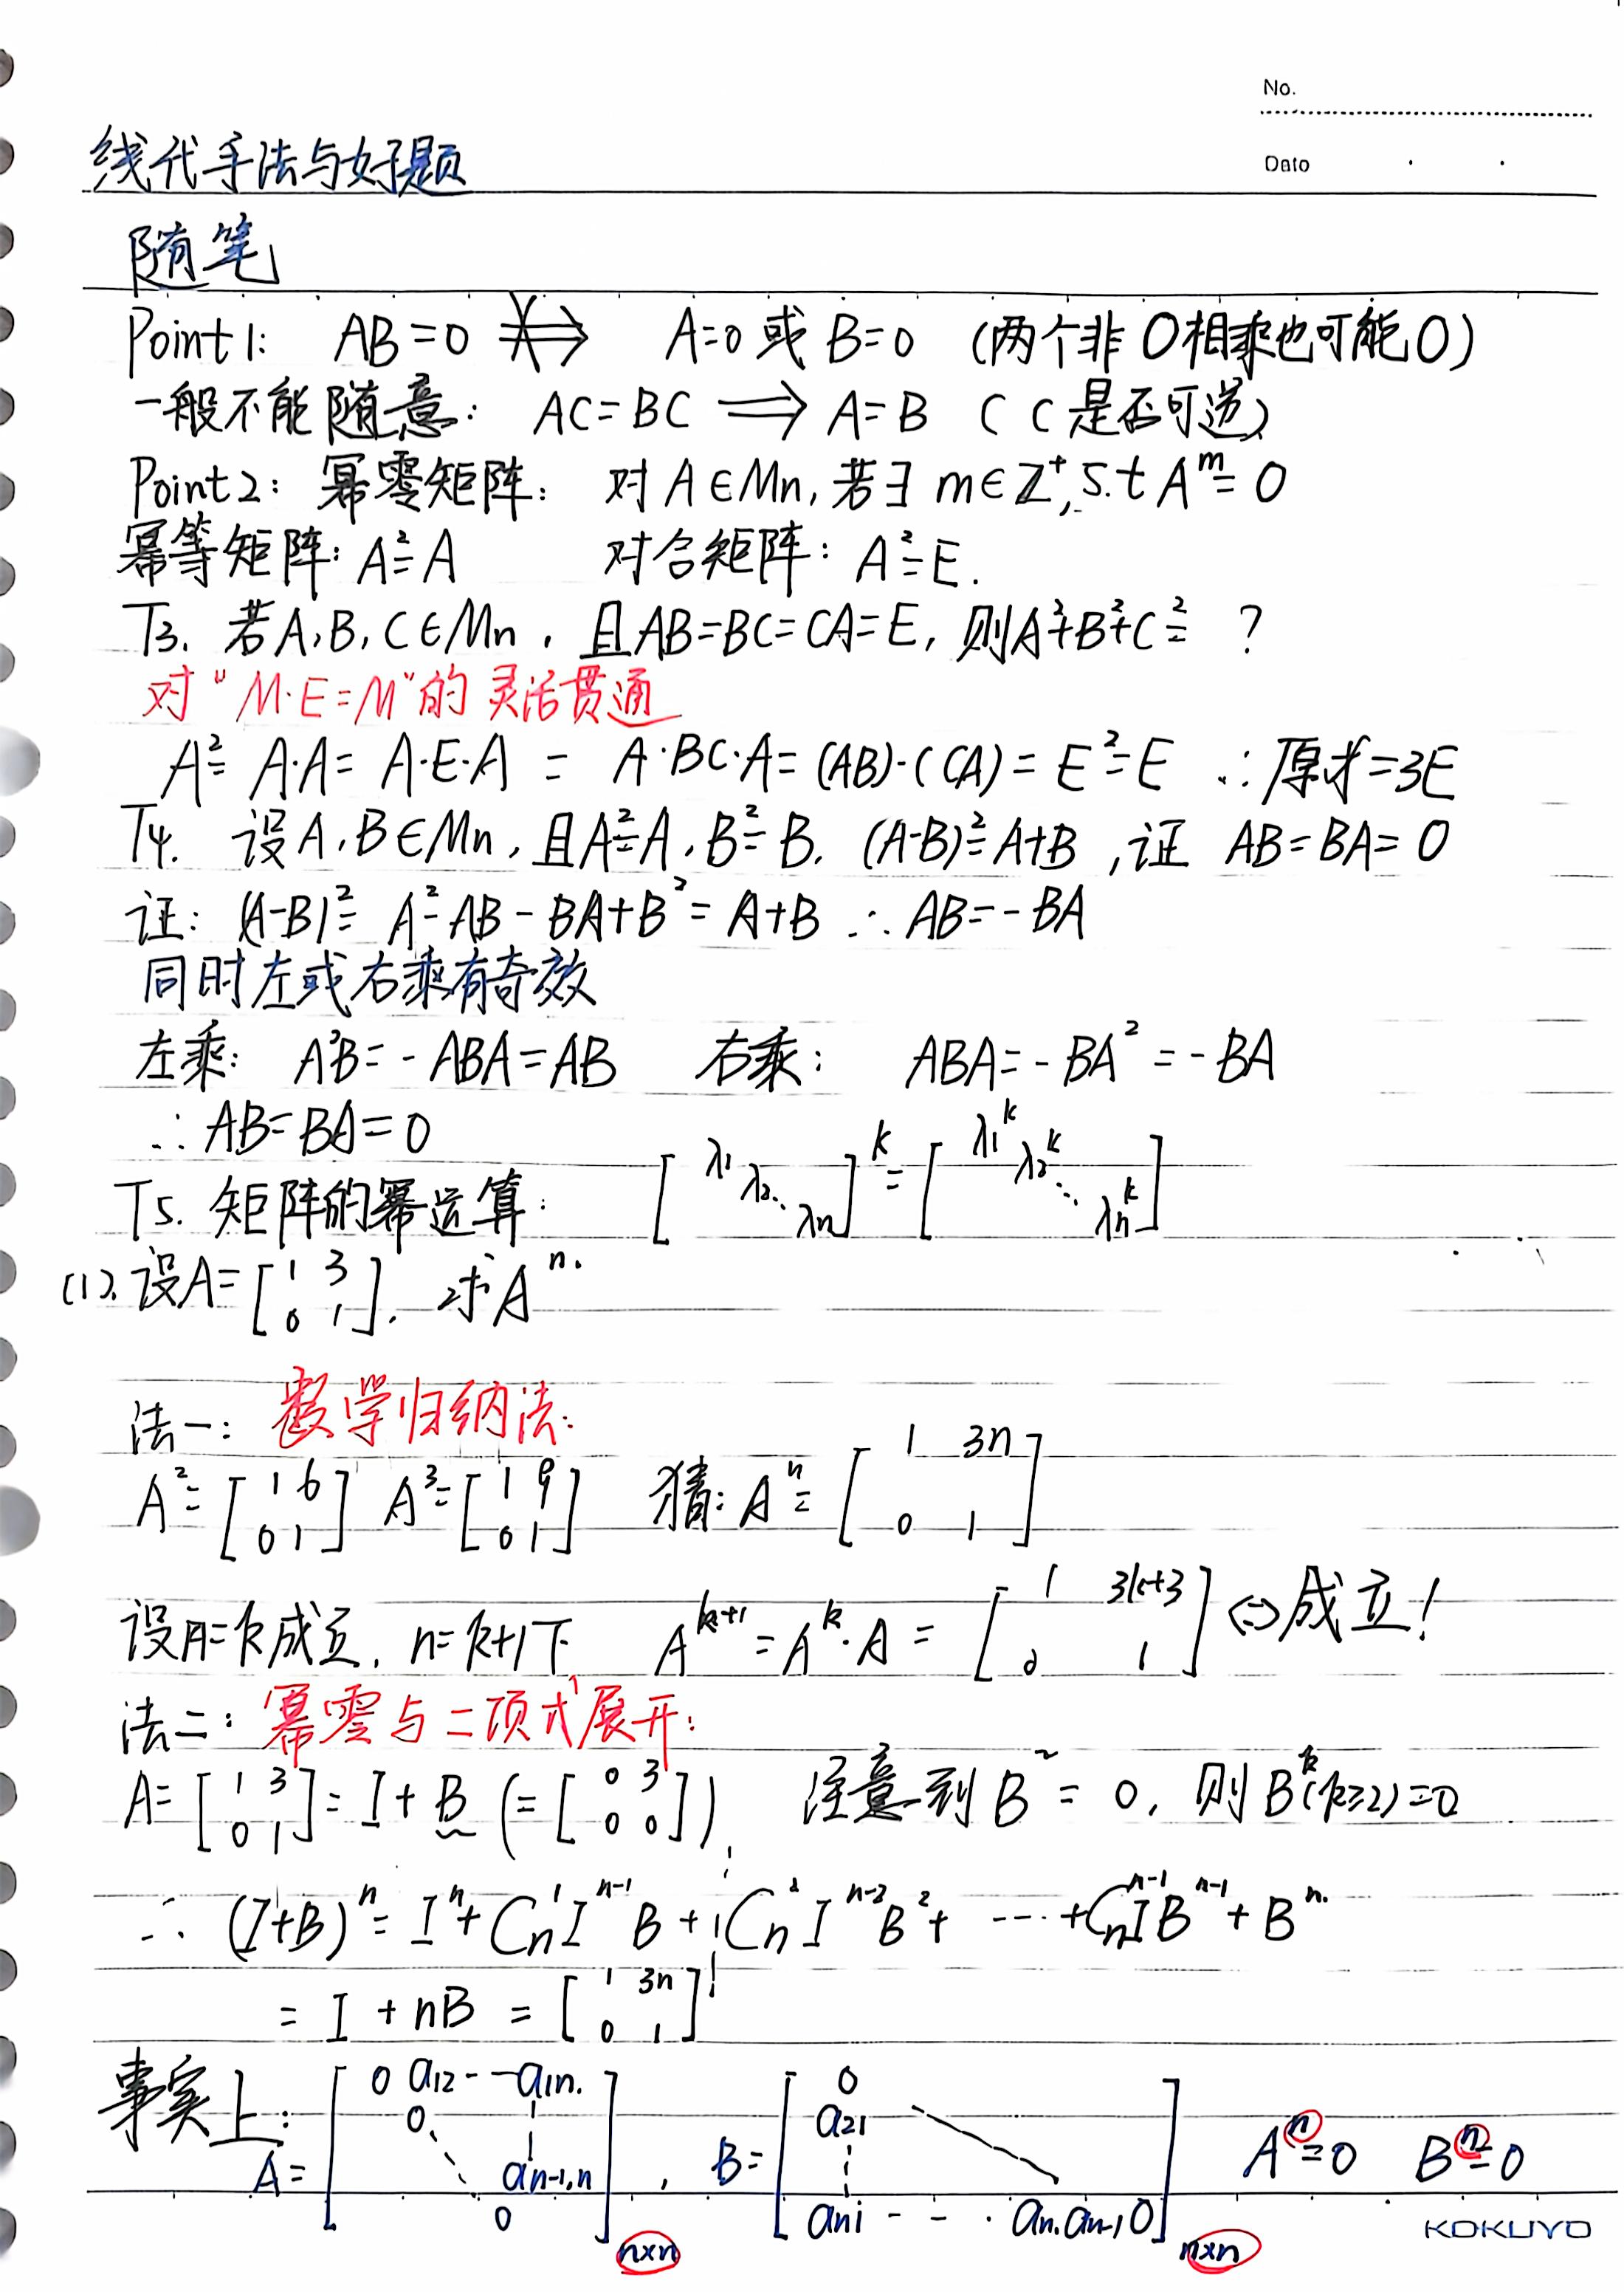 No.
Date
线代手法与好题
随笔
Point1: AB=0 ⇏ A=0 或 B=0 (两个非0相乘也可能0)
一般不能随意: AC=BC ⟹ A=B ( C是否可逆)
Point2: 幂零矩阵: 对A∈Mn, 若∃ m∈Z⁺, s.t Aᵐ=0
幂等矩阵: A²=A 对合矩阵: A²=E.
T3. 若A,B,C∈Mn, 且AB=BC=CA=E, 则A²+B²+C²= ?
对"M·E=M"的灵活贯通
A²= A·A= A·E·A = A·BC·A= (AB)·(CA) = E²=E ∴原式=3E
T4. 设A,B∈Mn, 且A²=A, B²=B, (A-B)²=A+B, 证 AB=BA=0
证: (A-B)²= A²-AB-BA+B²= A+B ∴ AB=-BA
同时左或右乘有奇效
左乘: A²B=-ABA=AB 右乘: ABA=-BA²=-BA
∴ AB=BA=0
T5. 矩阵的幂运算: [λ1 λ2 ⋱ λn]ᵏ = [λ1ᵏ λ2ᵏ ⋱ λnᵏ]
(1). 设A=[1 3; 0 1], 求Aⁿ.
法一: 数学归纳法:
A²=[1 6; 0 1] A³=[1 9; 0 1] 猜: Aⁿ=[1 3n; 0 1]
设n=k成立, n=k+1下 Aᵏ⁺¹=Aᵏ·A=[1 3k+3; 0 1] ⇔成立!
法二: 幂零与二项式展开:
A=[1 3; 0 1]=I+B (=[0 3; 0 0]) 注意到B²=0, 则Bᵏ(k≥2)=0
∴ (I+B)ⁿ=Iⁿ+Cn¹Iⁿ⁻¹B+Cn²Iⁿ⁻²B²+ ···+Cnⁿ⁻¹IBⁿ⁻¹+Bⁿ.
= I+nB = [1 3n; 0 1]
事实上: A=[0 a12 --a1n. 0 ⋱ an-1,n 0]n×n, B=[0 a21 an1 --· an,an-1 0]n×n Aⁿ=0 Bⁿ=0
KOKUYO